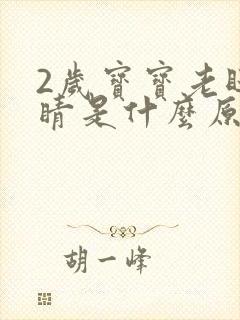 2歲寶寶老眨
睛是什麼原
胡一峰